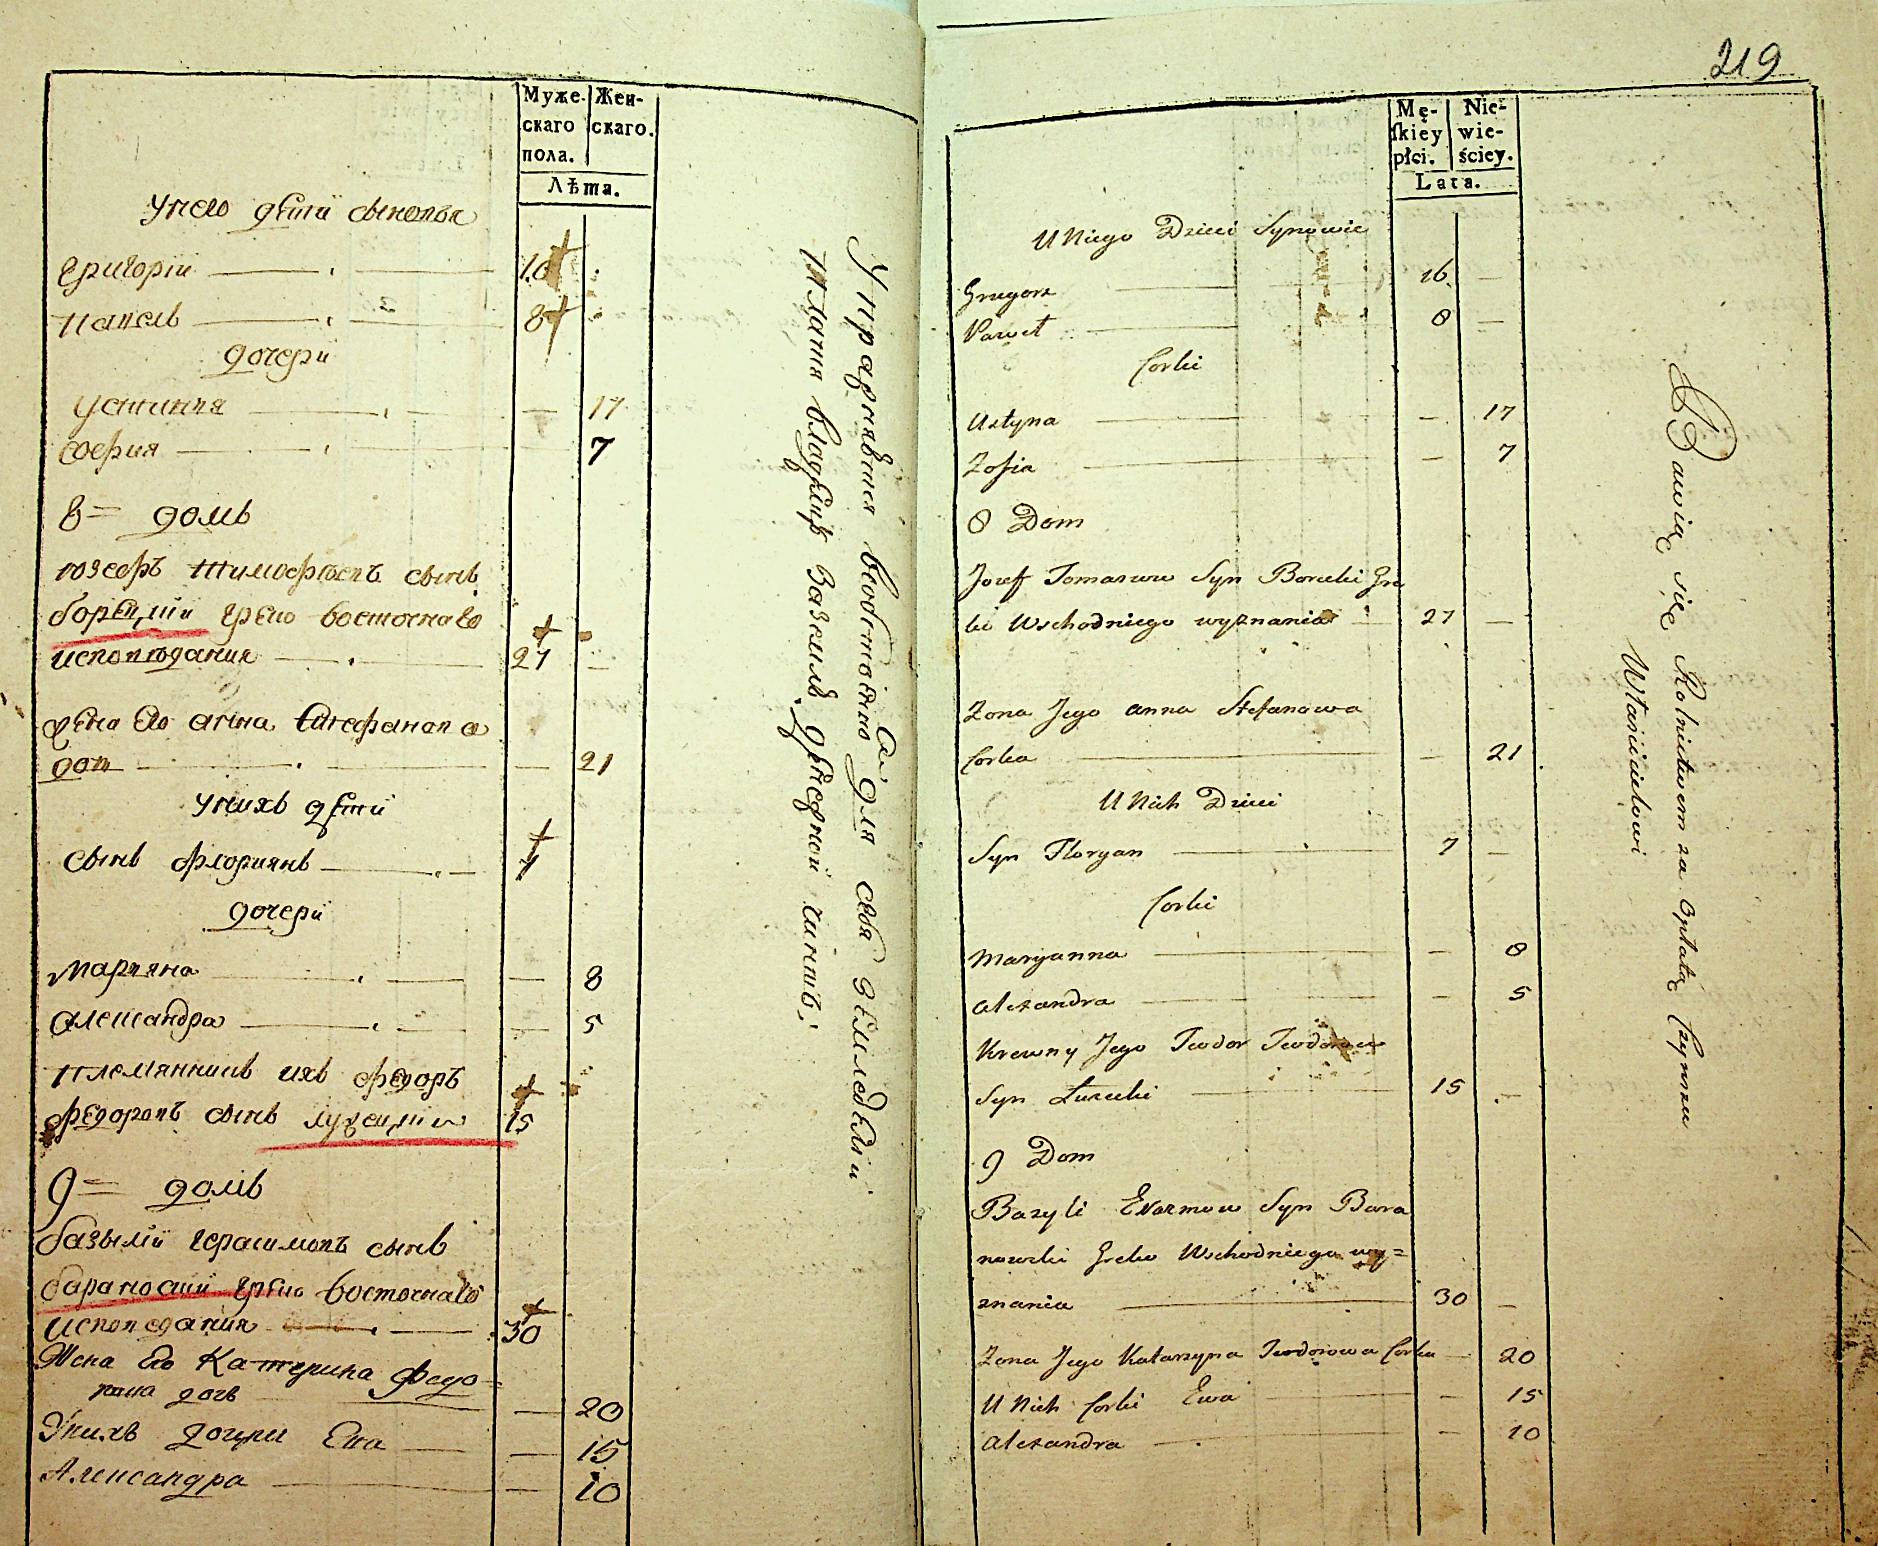 Муже-
скаго
пола.
Жен-
скаго.
Лѣта.
У него дѣти сыновья
Григорїй 16
Павелъ 8
дочери
Устинья — 17
София — 7
8= домъ
Юзефъ Тимофѣевъ сынъ
Борецкїй Греко восточнаго
исповѣдания 27
жена его Анна Стефанова
доч — 21
У нихъ дѣти
сынъ Флориянъ 7
дочери
Марияна — 8
Александра — 5
Племянникъ ихъ Федоръ
Федоровъ сынъ Лузецкїй 15
9= домъ
Базылїй Герасимовъ сынъ
Барановскїй Греко восточнаго
исповедания 30
Жена его Катерина Федо-
рова дочь — 20
У нихъ дочери Ева — 15
Александра — 10
Упражняются для себя земледѣлїи
Платя Владѣльцу За землѣ чиншъ.
219
Mę-
skiey
płci.
Nie-
wie-
ściey.
Lata.
U Niego Dzieci Synowie
Grzegorz 16 —
Paweł 8 —
Corki
Ustyna — 17
Zofia — 7
8 Dom
Jozef Tomaszow Syn Borecki Gre
ki Wschodniego wyznania 27 —
Zona Jego Anna Stefanowa
Corka — 21
U Nich Dzieci
Syn Floryan 7 —
Corki
Maryanna — 8
Alexandra — 5
Krewny Jego Teodor Teodorow
Syn Łuzecki 15 —
9 Dom
Bazyli Syn Bara
nowski Greko Wschodniego wy=
znania 30 —
Zona Jego Katarzyna Teodorowa Corka — 20
U Nich Corki Ewa — 15
Alexandra — 10
Bawią się Rolnictwem za opłatą Czynszu
Właścicielowi